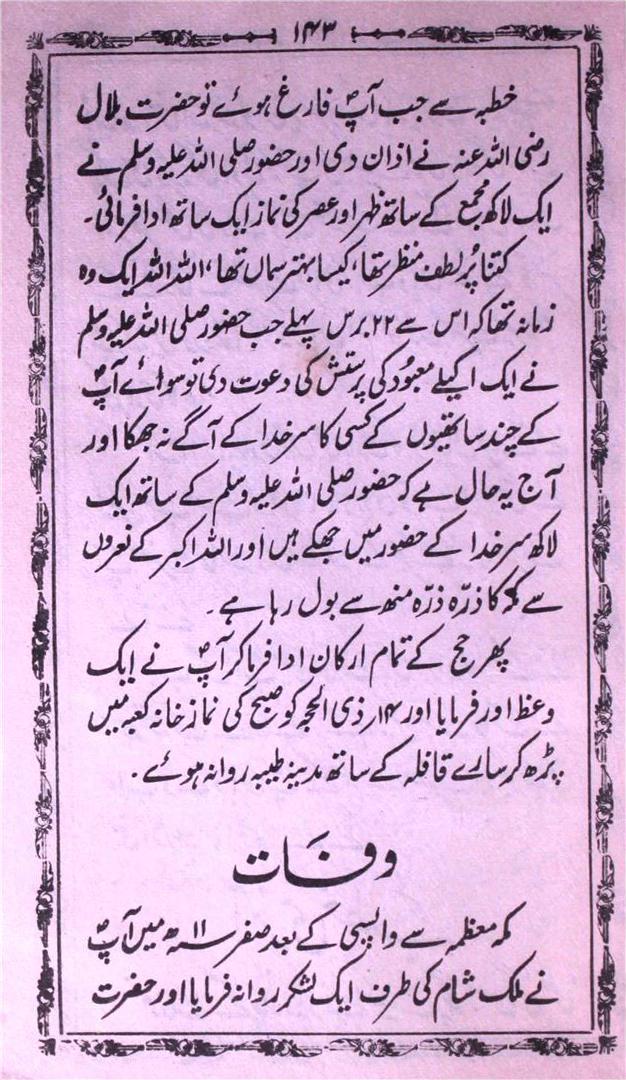 ۱۴۳
خطبہ سے جب آپؐ فارغ ہوئے تو حضرت بلال
رضی اللہ عنہ نے اذان دی اور حضور صلی اللہ علیہ وسلم نے
ایک لاکھ مجمع کے ساتھ ظہر اور عصر کی نماز ایک ساتھ ادا فرمائی۔
کتنا پُر لطف منظر تھا، کیسا بہتر سماں تھا، اللہ اللہ ایک وہ
زمانہ تھا کہ اس سے ۲۲ برس پہلے جب حضور صلی اللہ علیہ وسلم
نے ایک اکیلے معبُود کی پرستش کی دعوت دی تو سوائے آپؐ
کے چند ساتھیوں کے کسی کا سر خدا کے آگے نہ جھکا اور
آج یہ حال ہے کہ حضور صلی اللہ علیہ وسلم کے ساتھ ایک
لاکھ سر خدا کے حضور میں جھکے ہیں اور اللہ اکبر کے نعروں
سے مکہ کا ذرّہ ذرّہ منھ سے بول رہا ہے۔
پھر حج کے تمام ارکان ادا فرما کر آپؐ نے ایک
وعظ اور فرمایا اور ۱۴ر ذی الحجہ کو صبح کی نماز خانہ کعبہ میں
پڑھ کر سارے قافلہ کے ساتھ مدینہ طیبہ روانہ ہوئے۔
وفَات
مکہ معظمہ سے واپسی کے بعد صفر ۱۱ سنہ ھ میں آپؐ
نے ملک شام کی طرف ایک لشکر روانہ فرمایا اور حضرت